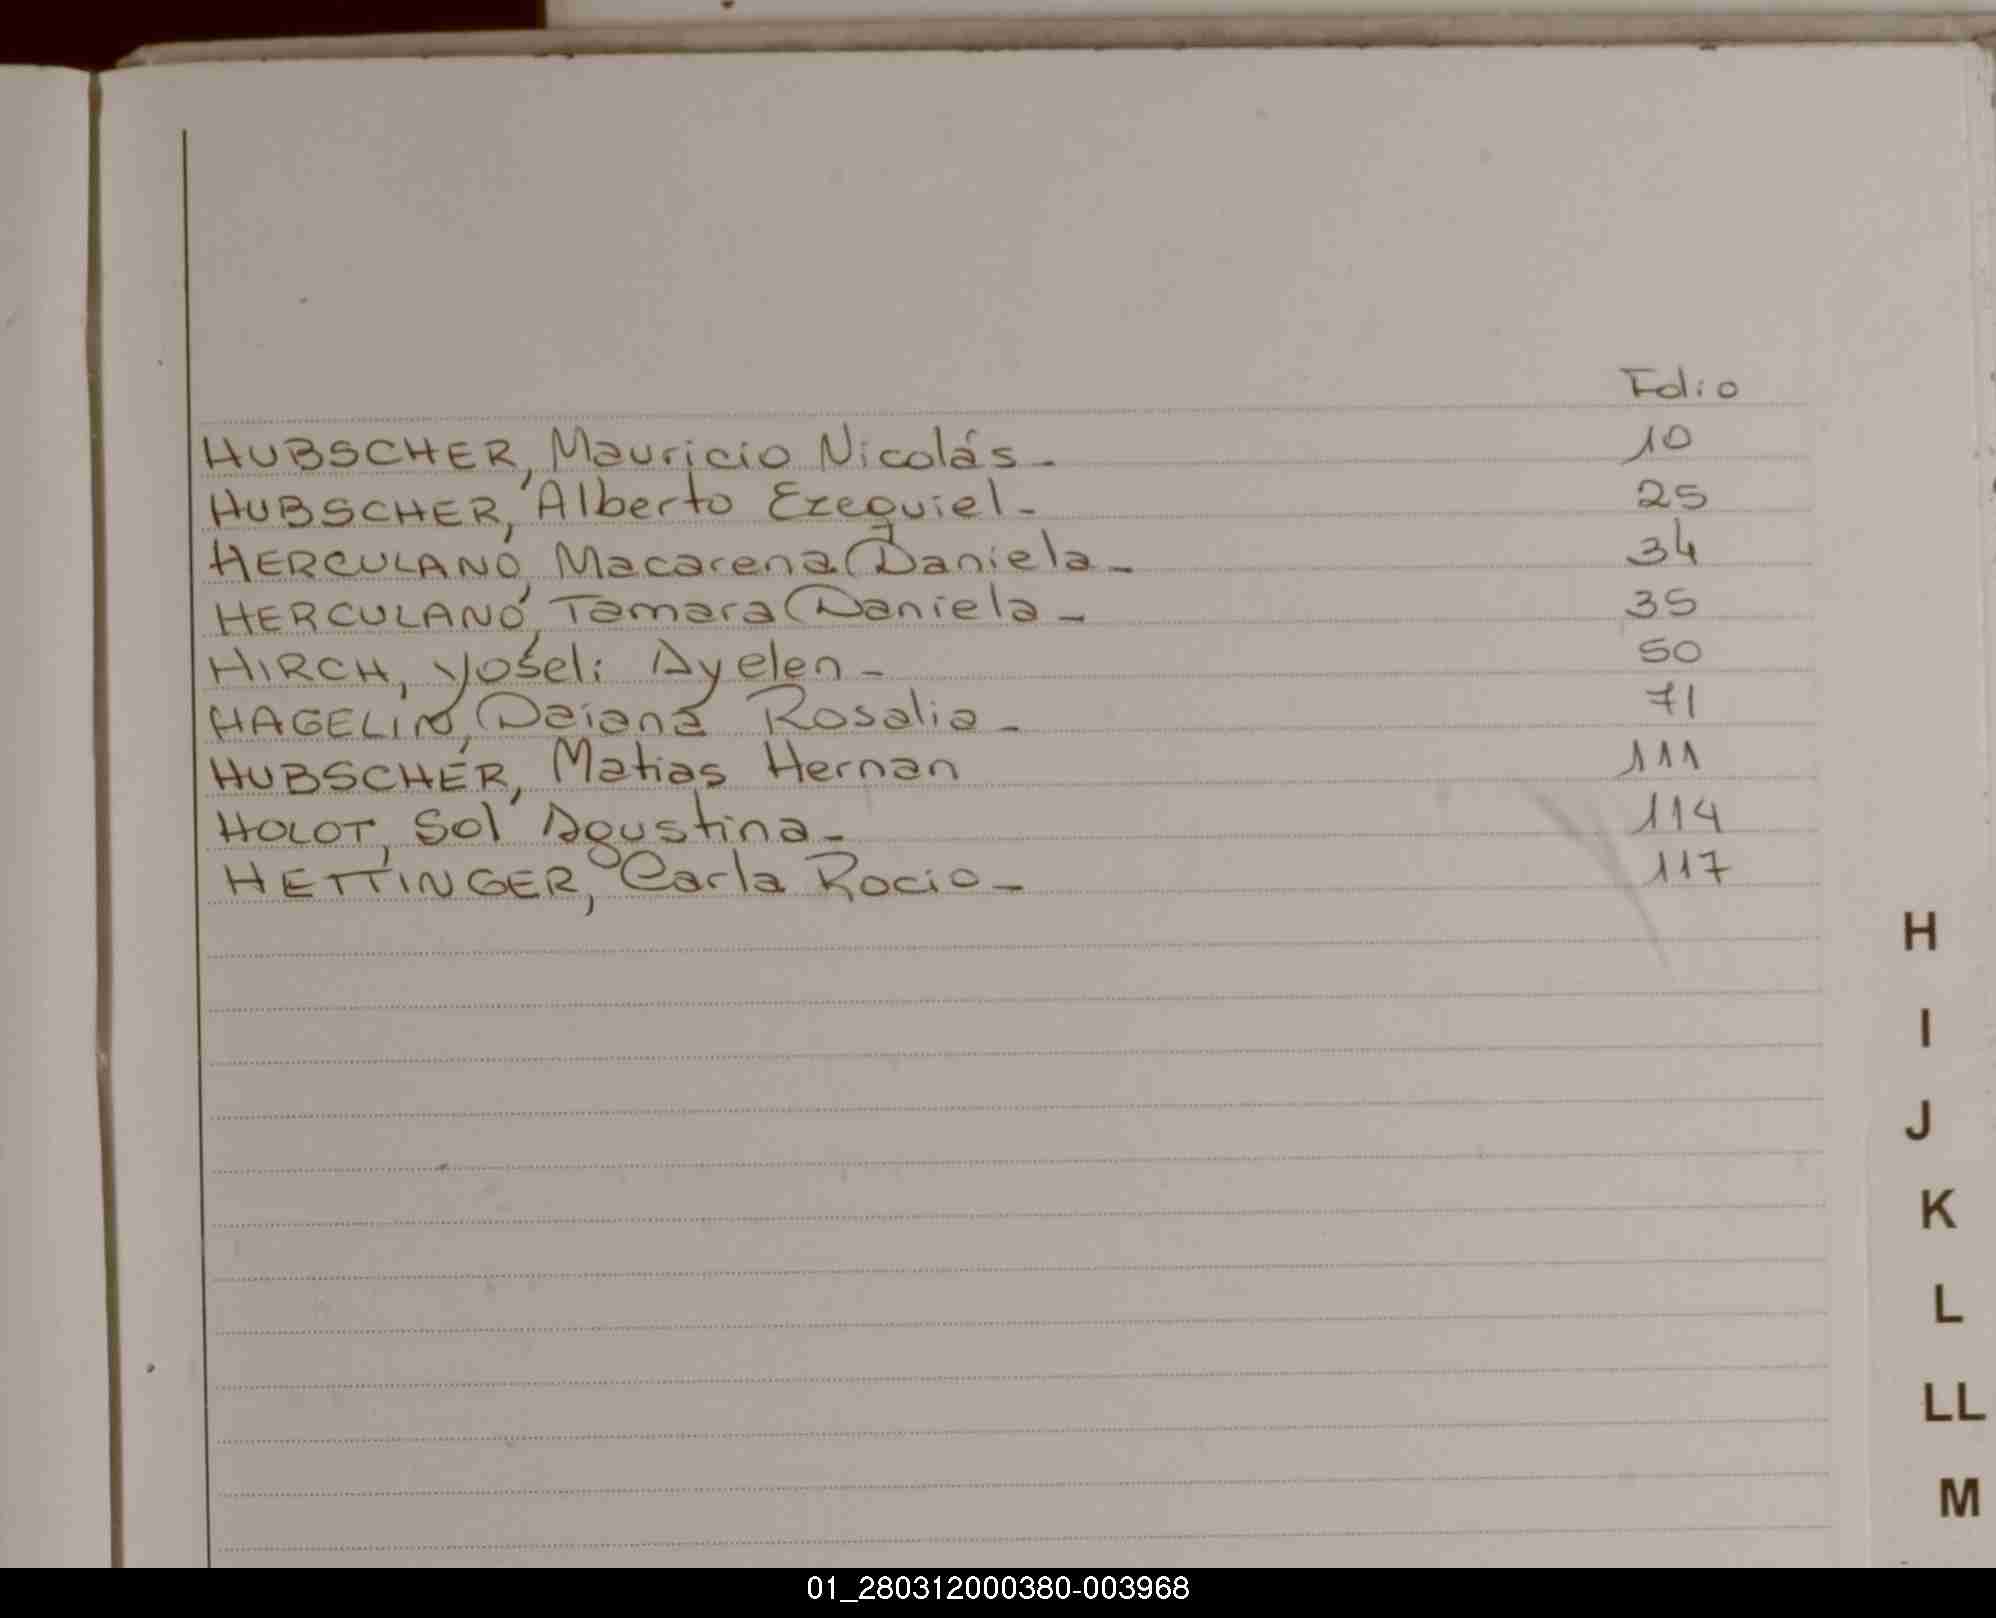 Folio
HUBSCHER, Mauricio Nicolás - 10
HUBSCHER, Alberto Ezequiel - 25
HERCULANO, Macarena Daniela - 34
HERCULANO, Tamara Daniela - 35
HIRCH, Yoseli Ayelen - 50
HAGELIN, Daiana Rosalia - 71
HUBSCHER, Matias Hernan 111
HOLOT, Sol Agustina - 114
HETTINGER, Carla Rocio - 117
H
I
J
K
L
LL
M
01_280312000380-003968